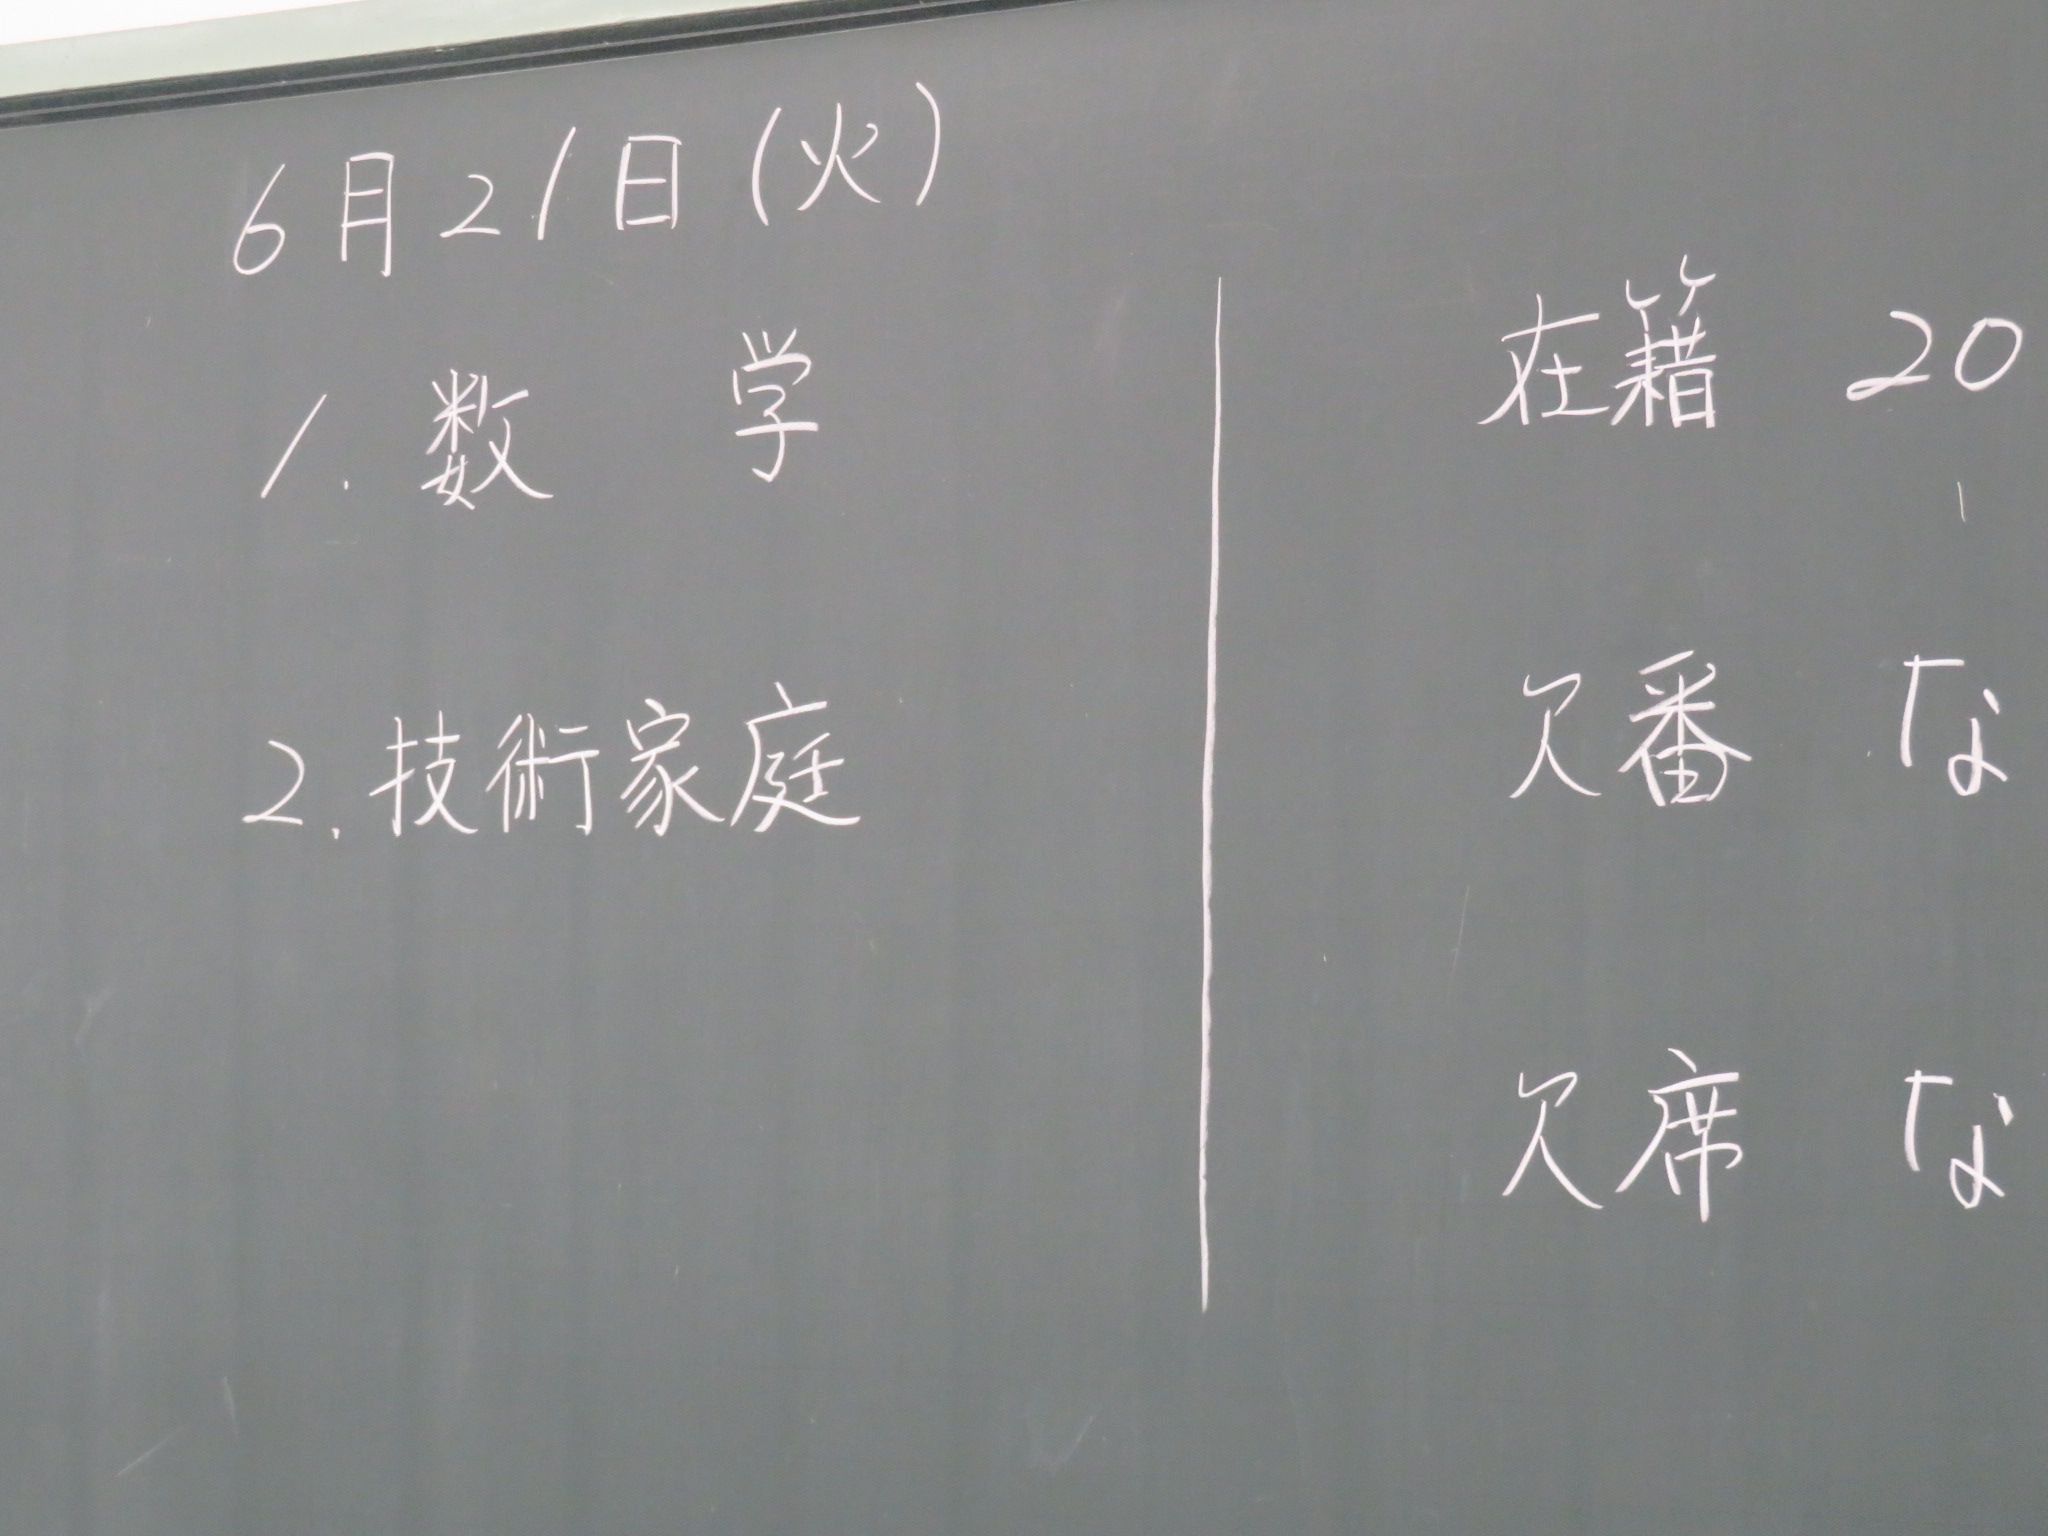 6月21日(火)
1. 数 学
2. 技術家庭
在籍 20
欠番 な
欠席 な